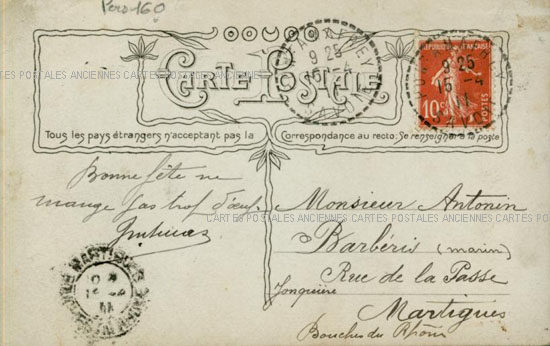 Pers-160
CARTE POSTALE
CARTES POSTALES ANCIENNES CARTES POSTALES ANCIENNES CARTES POSTALES ANCIENNES
Tous les pays étrangers n'acceptant pas la Correspondance au recto: Se renseigner à la poste
RÉPUBLIQUE FRANÇAISE
10c POSTES
9 25
15 -4
9 25
Bonne fête ne
mange pas trop d'œufs.
Monsieur Antonin
Barbéris (marin)
Rue de la Passe
Jonquière
Martigues
Bouches du Rhône
MARTIGUES
CARTES POSTALES ANCIENNES CARTES POSTALES ANCIENNES CARTES POSTALES ANCIENNES